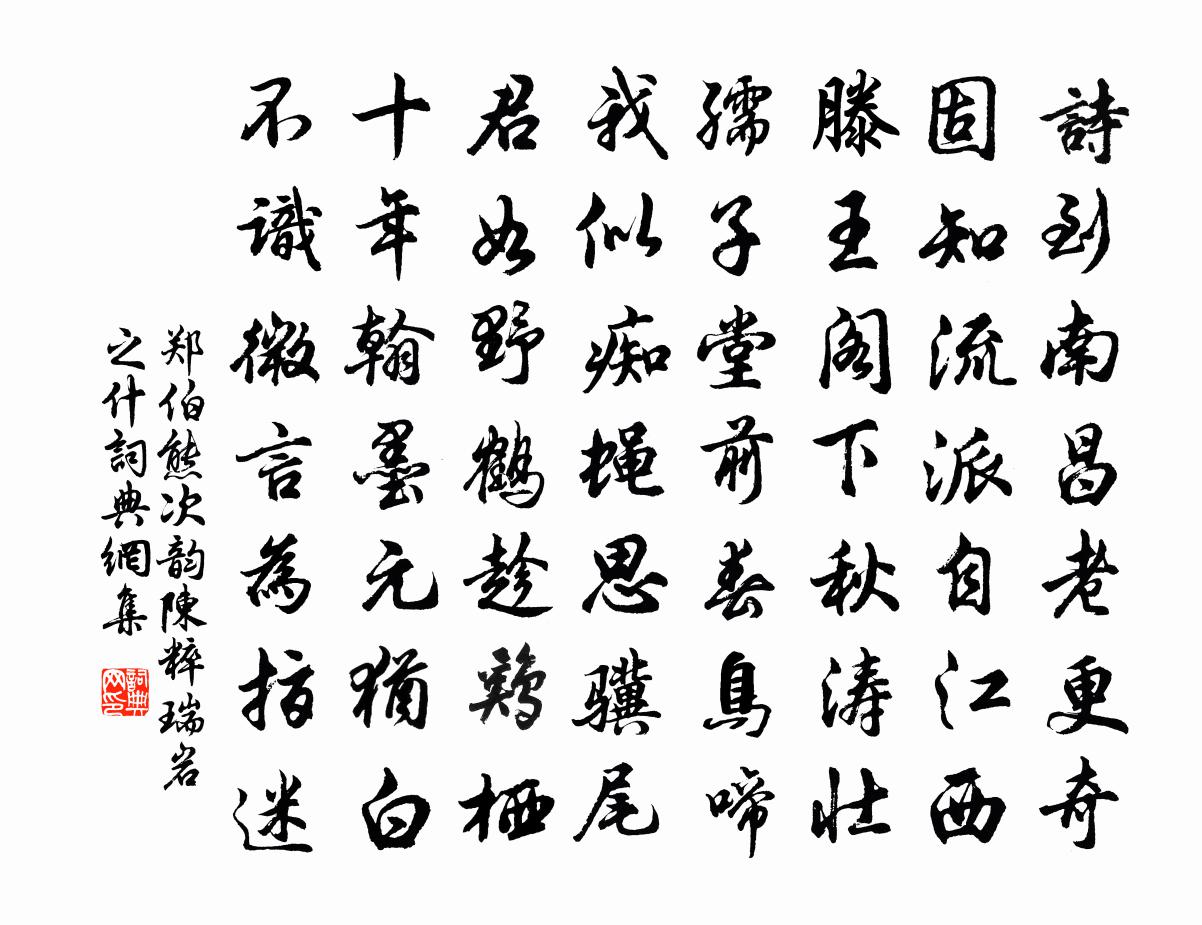 詩到南昌老更奇
固知流派自江西
滕王阁下秋涛壮
孺子堂前春鳥啼
我似痴蝇思骥尾
君如野鹤趁鶏栖
十年翰墨元犹白
不識微言為指迷
郑伯熊次韵陳粹瑞岩
之什詞典網集
詞典網印